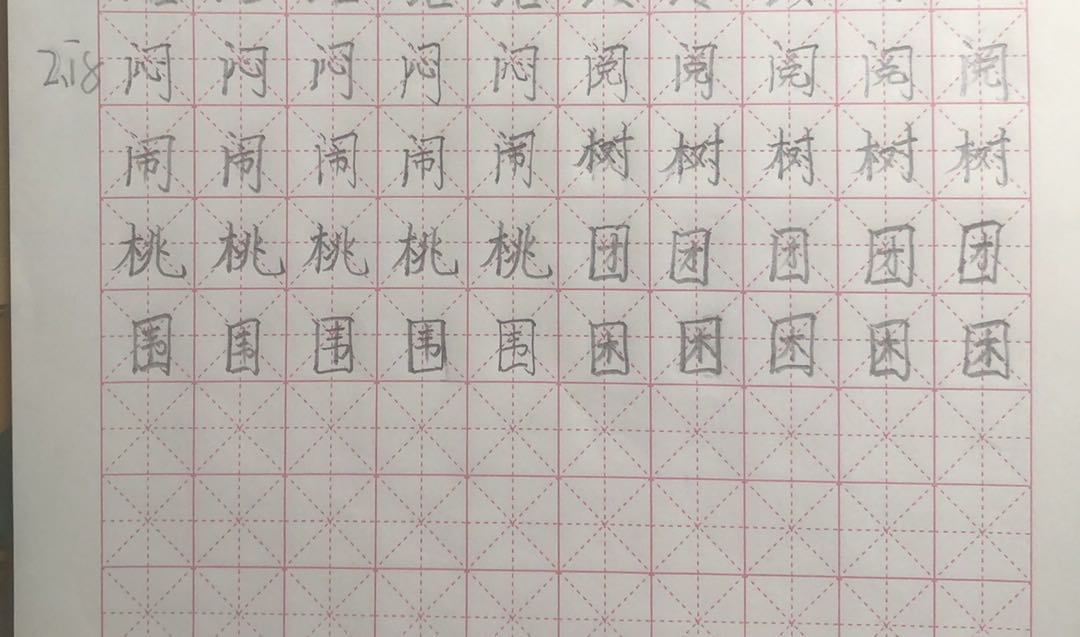 2.18 闷闷闷闷闷阅阅阅阅阅
闹闹闹闹闹树树树树树
桃桃桃桃桃团团团团团
围围围围围困困困困困